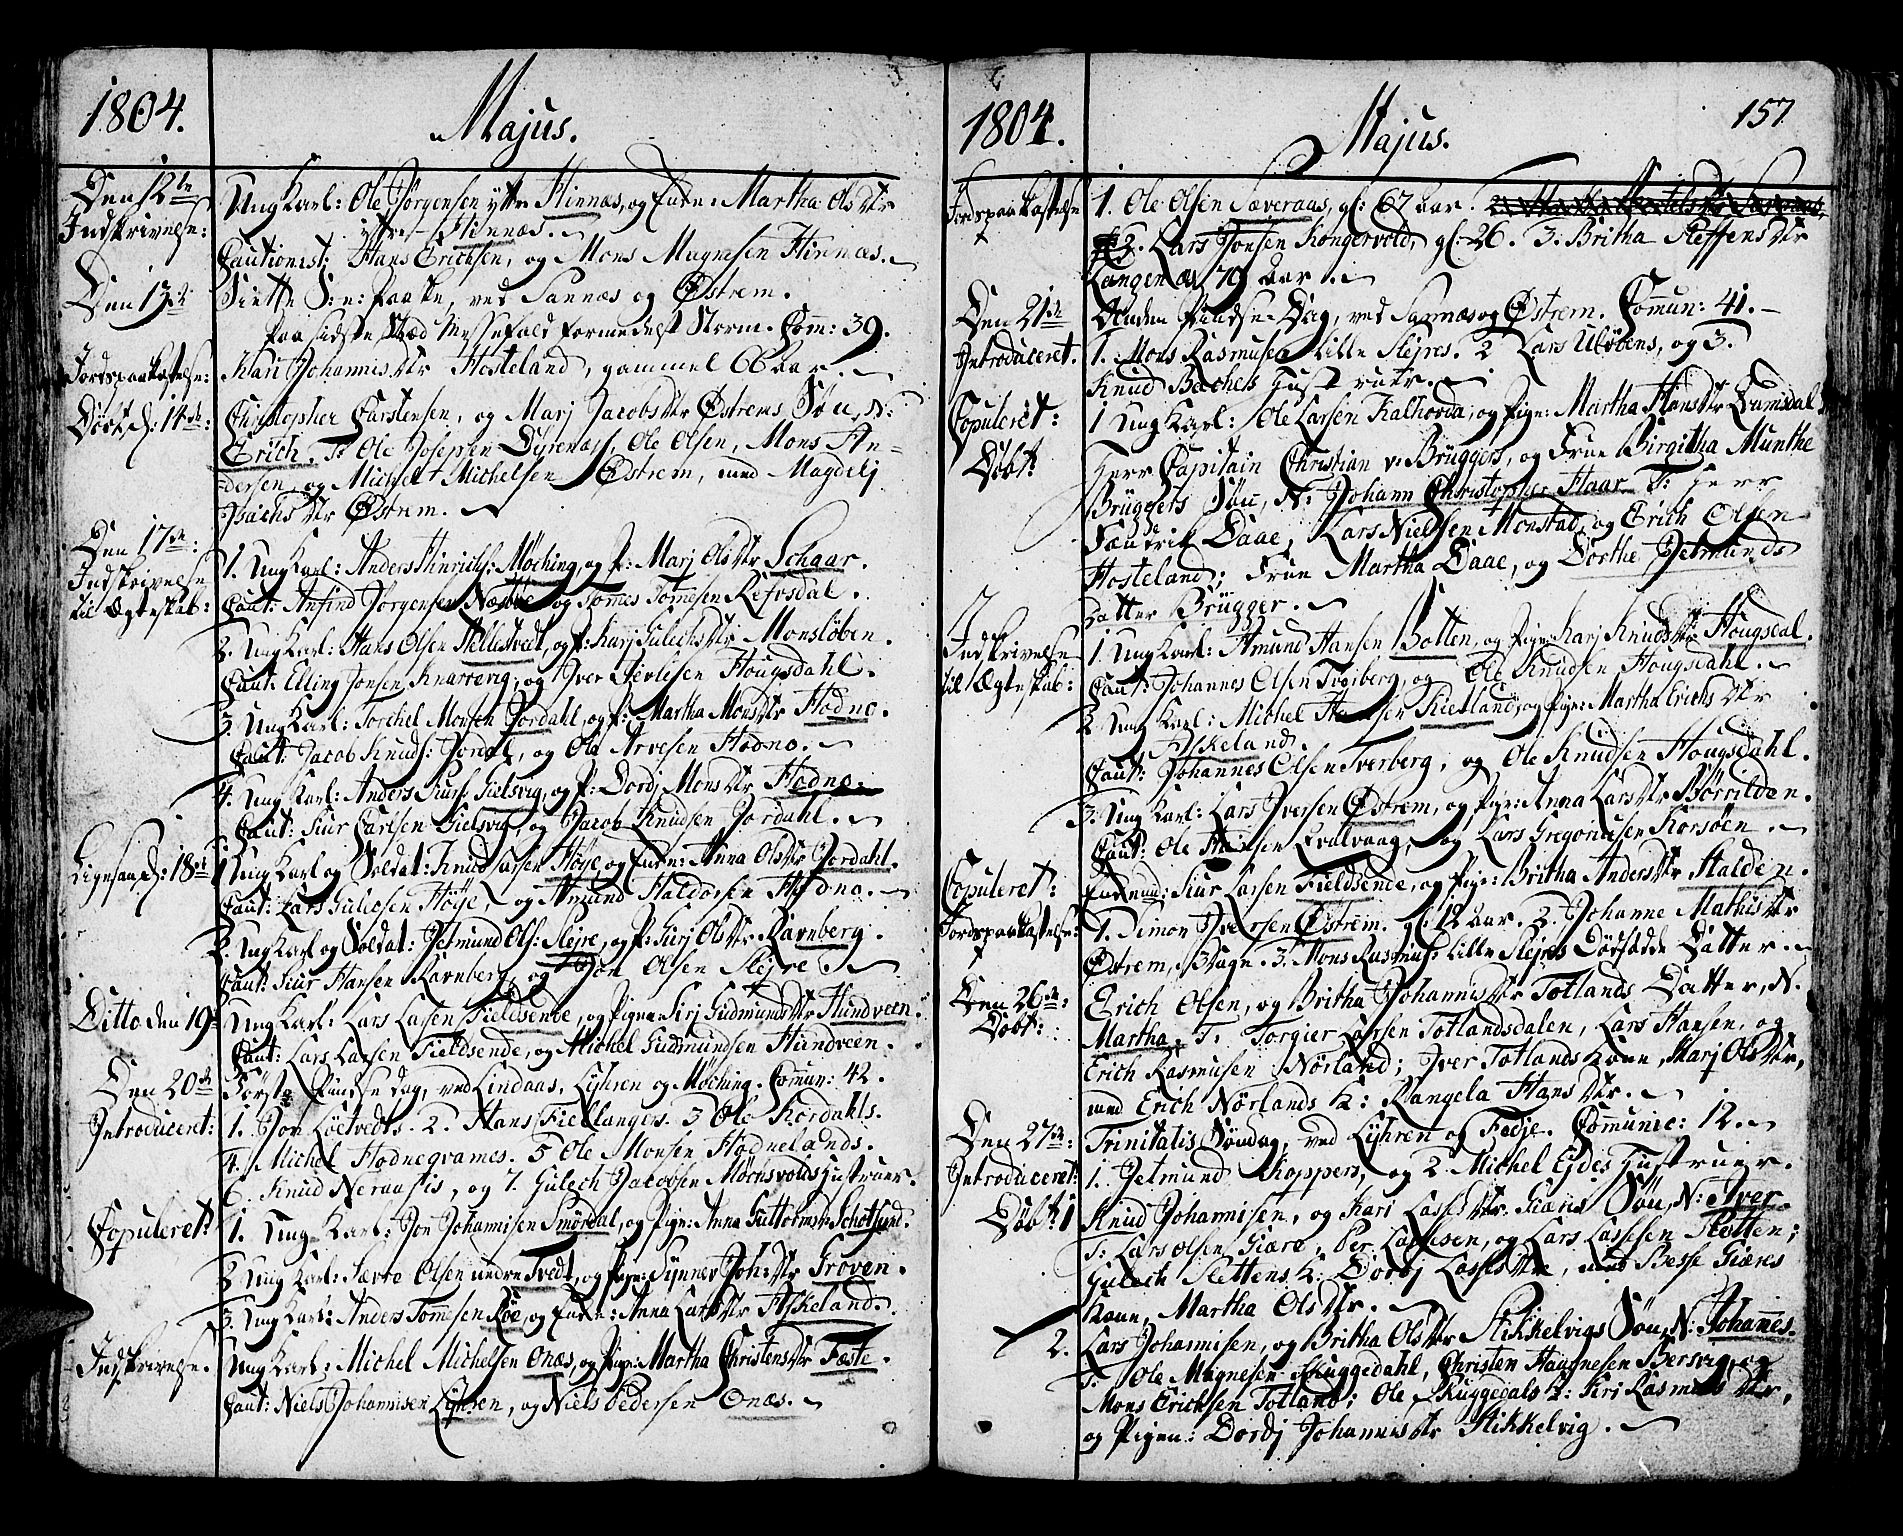 1804. Majus.
Den 12te Ung Karl: Ole Jørgensen yttre Hinnæs, og Enke: Martha Olsdtr
Indskrivelse: yttre Hinnæs.
Cautionist: Hans Erichsen, og Mons Magnesen Hinnæs.
Den 13de Siette S: e: Paaske, ved Sannæs og Østrem.
Paa sidste Stæd Messefald formedelst Storm. Com: 39.
Jordspaakastelse: Kari Johannisdtr Hosteland, gammel 66 aar.
Døbt d: 14de: Christopher Carstensen, og Marj Jacobsdtr Østrems Søn, N:
Erich. T: Ole Josephsen Dyrenæss, Ole Olsen, Mons An-
dersen, og Michel Michelsen Østrem, med Magdelj
Isachsdtr Østrem.
Den 17de: 1. Ung Karl: Anders Hinrichs: Møching, og P: Marj Olsdtr Schaar.
Indskrivelse Caut: Anfind Jørgensen Næsbøe og Tomes Tomesen Refsdal.
til Ægteskab: 2. Ung Karl: Hans Olsen Hellisvedt, og P: Karj Gulechsdtr Monsløben.
Caut: Elling Jonsen Knarrevig, og Iver Derlisen Hougsdahl.
3. Ung Karl: Torchel Monsen Jordahl, og P: Martha Monsdtr Hodno.
Caut: Jacob Knuds: Jordal, og Ole Arvesen Hodno.
4. Ung Karl: Anders Siurs: Gielsvig, og P: Dordj Monsdtr Hodno.
Caut: Siur Carlsen Gielsvig, og Jacob Knudsen Jordahl.
Ligesaa d: 18de 1. Ung Karl og Soldat: Knud Larsen Høye og Enke: Anna Olsdtr Jordahl.
Caut: Lars Guliksen Høye, og Amund Haldorsen Hodno.
2. Ung Karl og Soldat: Jetmund Ols: Slejre, og P: Siri Olsdtr Ravnberg.
Caut: Siur Hansen Ravnberg, og Jon Olsen Slejre.
Ditto den 19de Ung Karl: Lars Larsen Fieldsende, og Pigen Sirj Gudmundsdtr Hundveen.
Caut: Lars Larsen Fieldsende, og Michel Gudmundsen Hundveen.
Den 20de Første Pindse Dag, ved Lindaas, Lyhren og Møching. Commun: 42.
Introduceret: 1. Jon Løetvedts. 2. Hans Fiellangers. 3 Ole Kordahls.
4. Michel Hodnegrames. 5 Ole Monsen Hodnelands.
6. Knud Neraasis, og 7. Gulech Jacobsen Mørnsvolds Hustruer.
Copuleret: 1. Ung Karl: Jon Johannisen Smørdal, og Pige: Anna Guttormsdtr Schotland.
2 Ung Karl: Sævre Olsen nedre Tvedt, og Pige: Synnev Joh:dtr Groven.
3. Ung Karl: Anders Tomesen Røe, og Enke: Anna Larsdtr Askeland.
Indskrivelse. Ung Karl: Michel Michelsen Onæs, og Pige: Martha Christensdtr Fæste.
Caut: Niels Johannisen Lyhren, og Niels Pedersen Onæs.
1804. Majus. 157
Jordspaakastelse 1. Ole Olsen Sæveraas, gl: 67 aar.
2. Lars Jonsen Kongervold, gl: 26. 3. Britha Steffensdtr
Langenæs 79 aar.
Den 21de Anden Pindse-Dag, ved Sannæs og Østrem. Commun: 41.
Introduceret. 1. Mons Rasmusen Lille Slejres. 2 Lars Uløbens, og 3.
Knud Bachels Hustruer.
Copuleret: 1 Ung Karl: Ole Larsen Kalhovda, og Pige: Martha Hansdtr Dumsdal
Døbt: Herr Capitain Christian v: Brüggers, og Frue Birgitha Munthe
Brüggers Søn, N: Johann Christopher Haar. T: Herr
Fændrik Daae, Lars Nielssen Monstad, og Erich Olsen
Hosteland; Frue Martha Daae, og Dorthe Jetmunds
Datter Brügger.
Indskrivelse 1. Ung Karl: Amund Hansen Botten, og Pige Karj Knudsdtr Hougsdal.
til Ægteskab: Caut: Johannes Olsen Tveiberg, og Ole Knudsen Hougsdahl.
2 Ung Karl: Michel Hansen Kietland, og Pige: Martha Erichsdtr
Askeland.
Caut: Johannes Olsen Tverberg, og Ole Knudsen Hougsdahl.
3. Ung Karl: Lars Iversen Østrem, og Pige: Anna Larsdtr Børrilden.
Caut: Ole Hansen Qvalvaag, og Lars Gregoriusen Korsøen.
Copuleret: Enkem: Siur Larsen Fieldsende, og Pige: Britha Andersdtr Halden.
Jordspaakastelse: 1. Simon Iversen Østrem. gl: 12 aar. 2. Johanne Mathisdtr
Østrem, 3 Dage. 3. Mons Rasmus: Lille Slejres Dødfødde Datter.
Den 26de: Erich Olsen, og Britha Johannisdtr Totlands Datter, N.
Døbt: Martha. T. Torgier Larsen Totlandsdalen, Lars Hansen, og
Erich Rasmusen Nørland; Iver Totlands Kone, Marj Olsdtr,
med Erich Nørlands K: Rangela Hansdtr.
Den 27de: Trinitatis Søndag, ved Lyhren og Fedje. Communic: 12.
Introduceret: 1. Jetmund Koppers, og 2 Michel Ejdes Hustruer.
Døbt: 1 Knud Johannisen, og Kari Lassesdtr Giæres Søn, N: Iver.
T: Lars Olsen Giære, Per Lassesen, og Lars Lassesen Sletten;
Gulech Slettens K: Dordj Lassesdtr, med Besse Giæres
Kone, Martha Olsdtr.
2. Lars Johannisen, og Britha Olsdtr Stikkelvigs Søn, N: Johannes.
T: Ole Magnesen Skuggedahl, Christen Haugnesen Bersvig, og
Mons Erichsen Totland; Ole Skuggedals K: Kri Rasmusdtr,
og Pigen: Dordj Johannisdtr Stikkelvig.